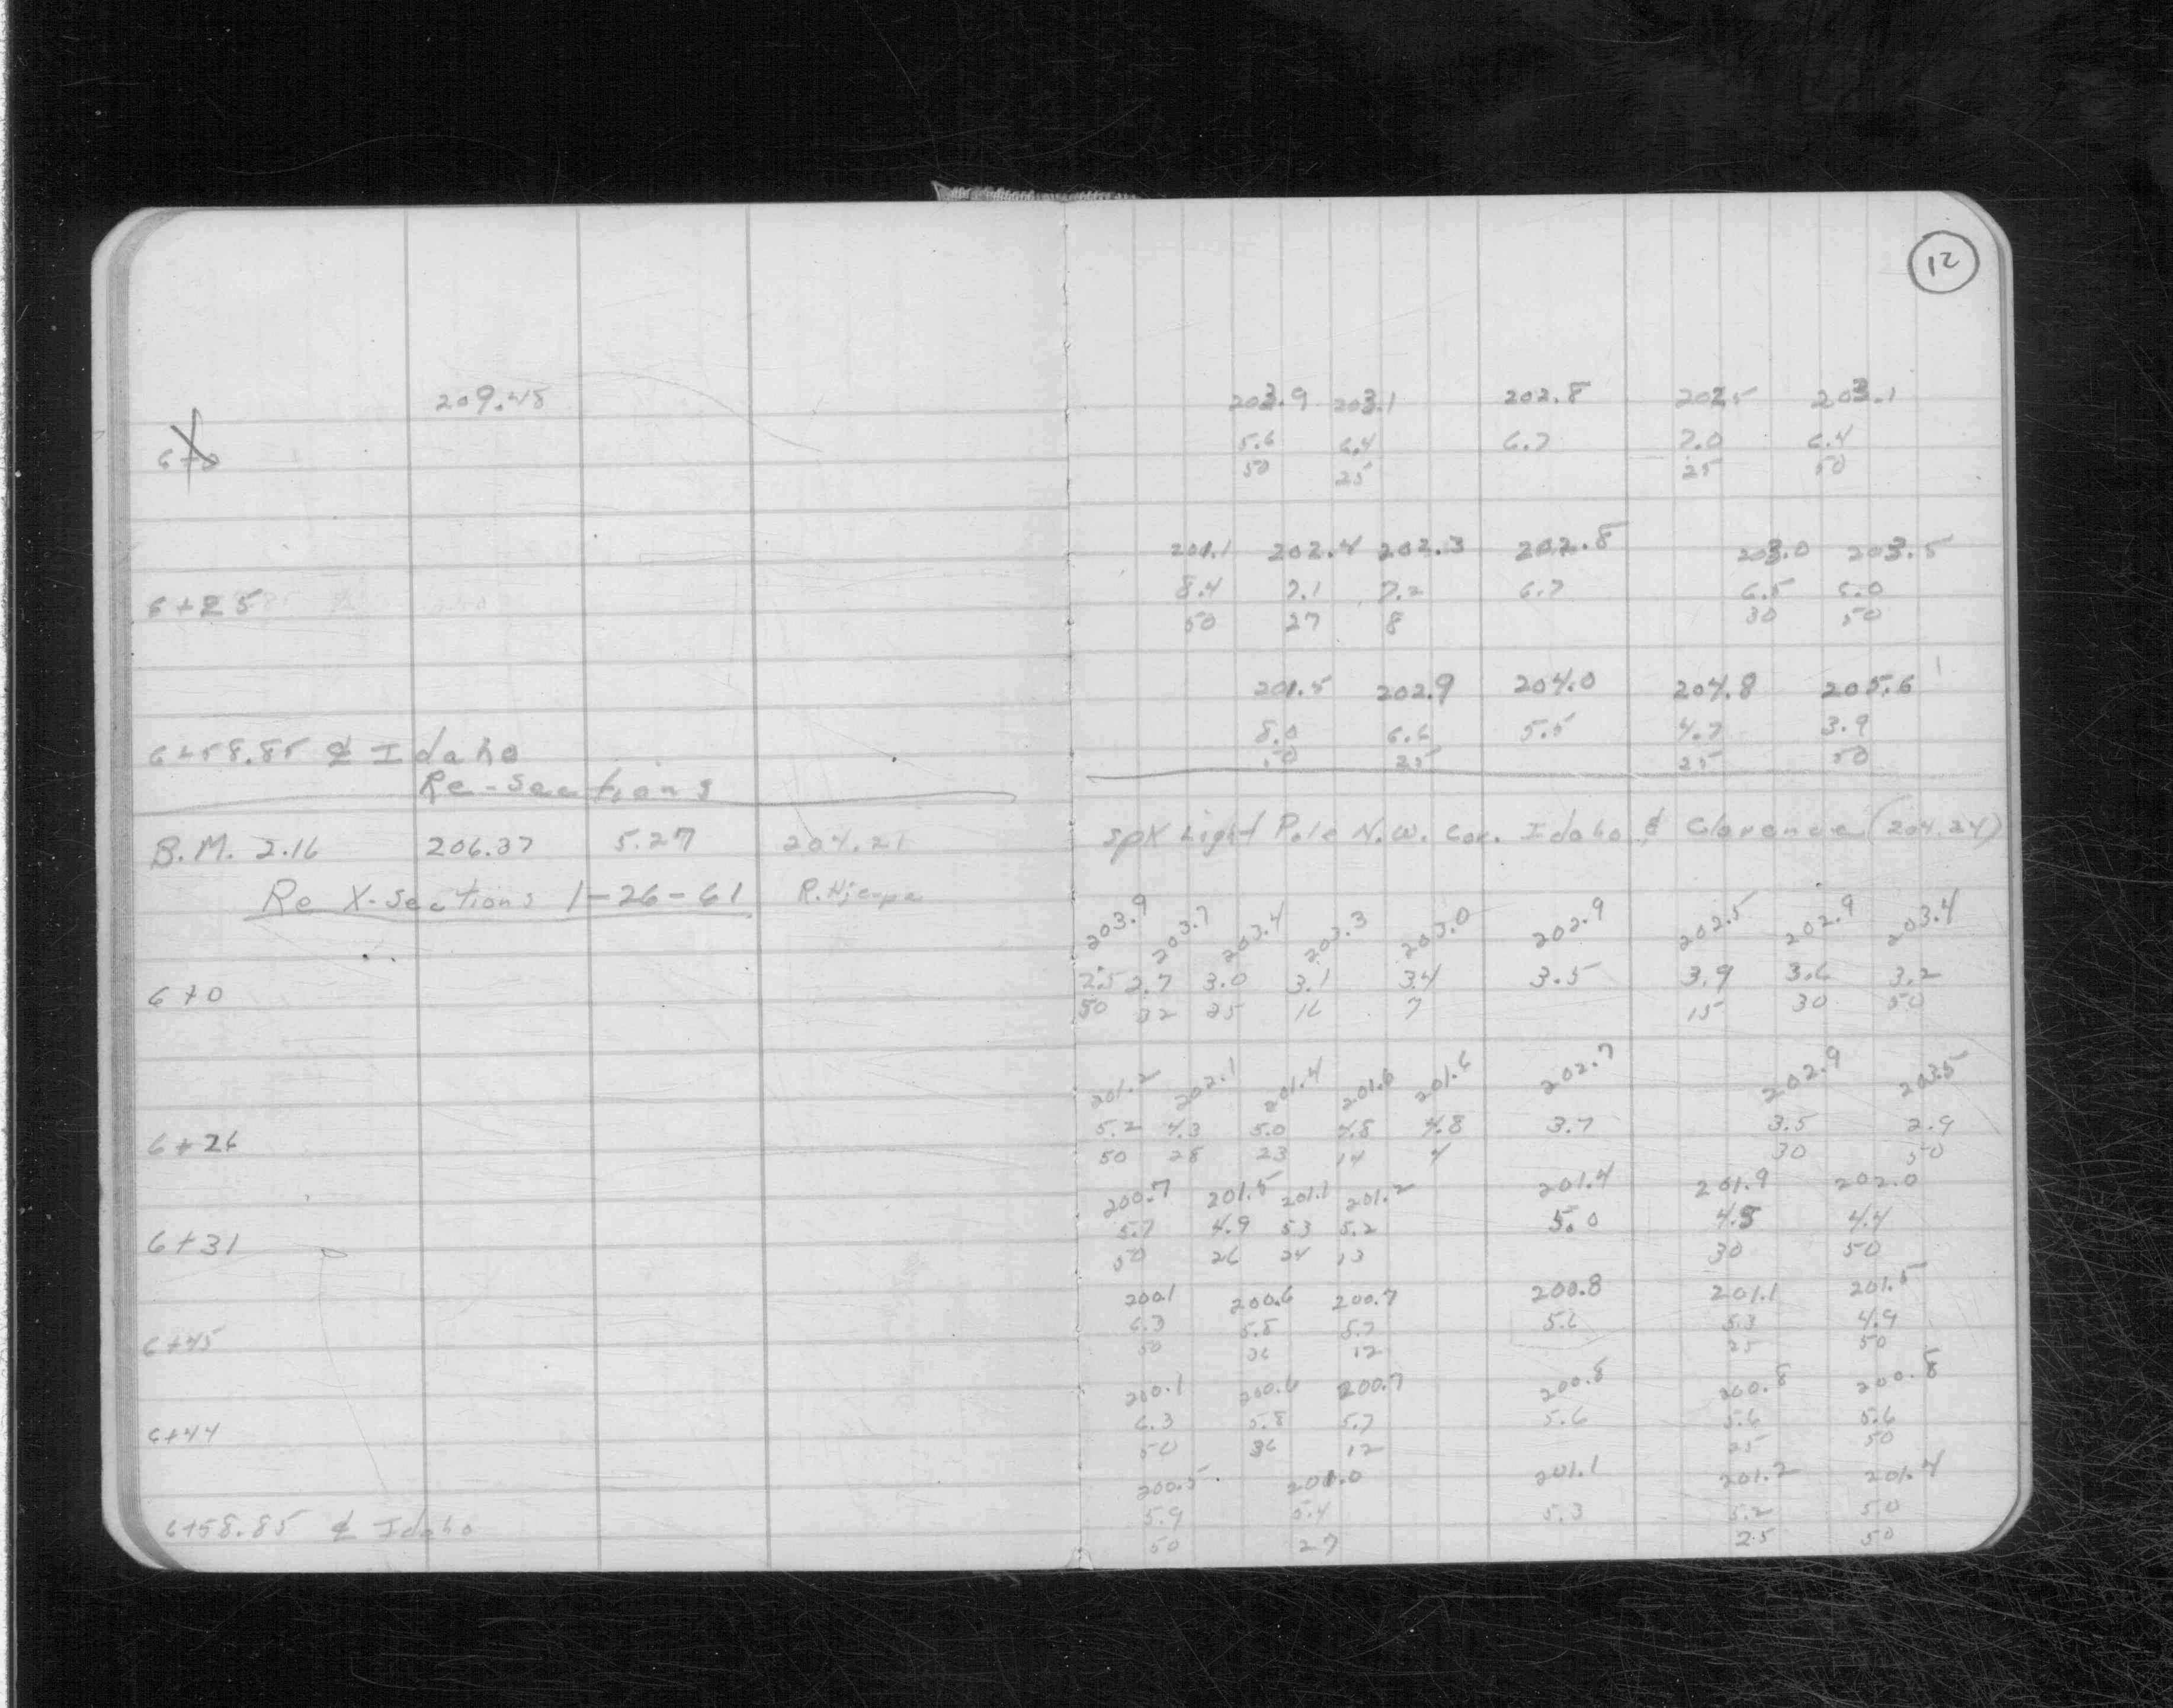 12
209.48 203.9 203.1 202.8 202.5 203.1
6+0 5.6 6.4 6.7 7.0 6.4
50 25 25 50
201.1 202.4 202.3 202.8 203.0 203.5
6+25 8.4 7.1 7.2 6.7 6.5 6.0
50 27 8 30 50
201.5 202.9 204.0 204.8 205.6
6+58.85 ℄ Idaho 8.0 6.6 5.5 4.7 3.9
50 25 25 50
Re-Sections
B.M. 2.16 206.37 5.27 204.21 Spk Light Pole N.W. Cor. Idaho & Clarence (204.24)
Re X-Sections 1-26-61
203.9 203.7 203.4 203.3 203.0 202.9 202.5 202.9 203.4
6+0 2.5 2.7 3.0 3.1 3.4 3.5 3.9 3.6 3.2
50 32 25 16 7 15 30 50
201.2 202.1 201.4 201.6 201.6 202.7 202.9 203.5
6+26 5.2 4.3 5.0 4.8 4.8 3.7 3.5 2.9
50 28 23 14 4 30 50
200.7 201.5 201.1 201.2 201.4 201.9 202.0
6+31 5.7 4.9 5.3 5.2 5.0 4.5 4.4
50 26 24 13 30 50
200.1 200.6 200.7 200.8 201.1 201.5
6+45 6.3 5.8 5.7 5.6 5.3 4.9
50 26 12 25 50
200.1 200.6 200.7 200.8 200.8 200.8
6+44 6.3 5.8 5.7 5.6 5.6 5.6
50 36 12 25 50
200.5 201.0 201.1 201.2 201.4
6+58.85 ℄ Idaho 5.9 5.4 5.3 5.2 5.0
50 27 25 50